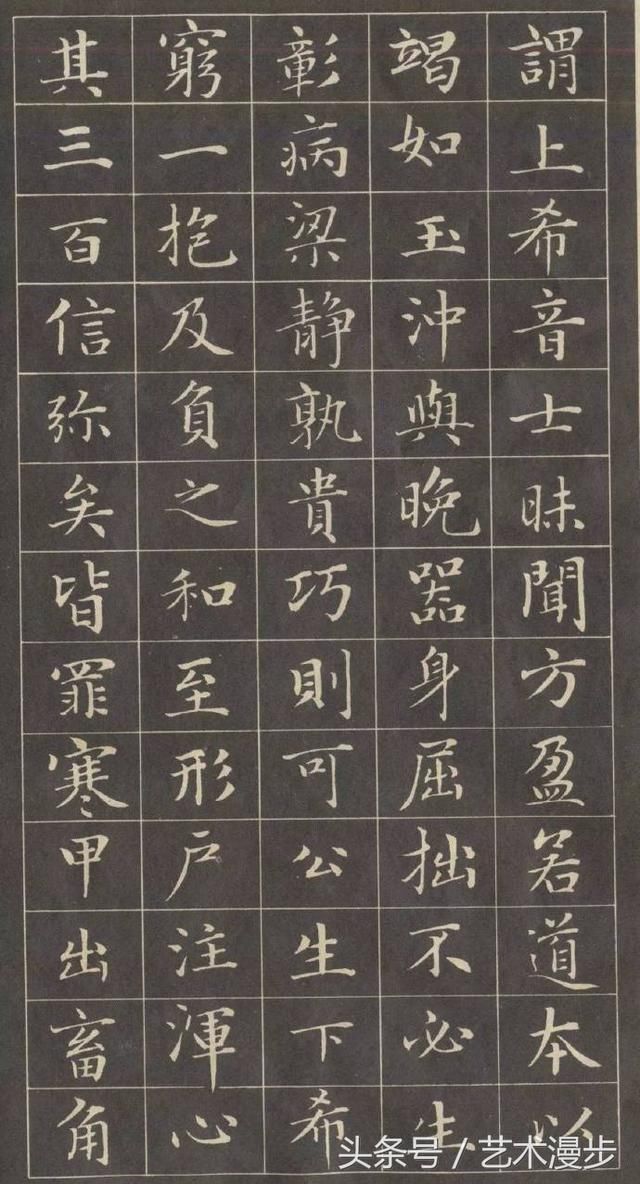 謂上希音士昧聞方盈若道本以
竭如玉沖與晚器身屈拙不必生
彰病梁静孰貴巧則可公生下希
窮一抱及負之和至形戶注渾心
其三百信弥矣皆罪寒甲出畜角
头条号/艺术漫步